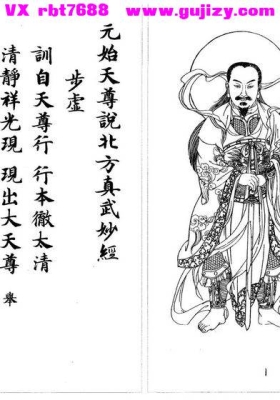 VX rbt7688 www.gujizy.com
元始天尊說北方真武妙經
步虛
訓自天尊行 行本徹太清
清靜祥光現 現出大天尊 舉
1